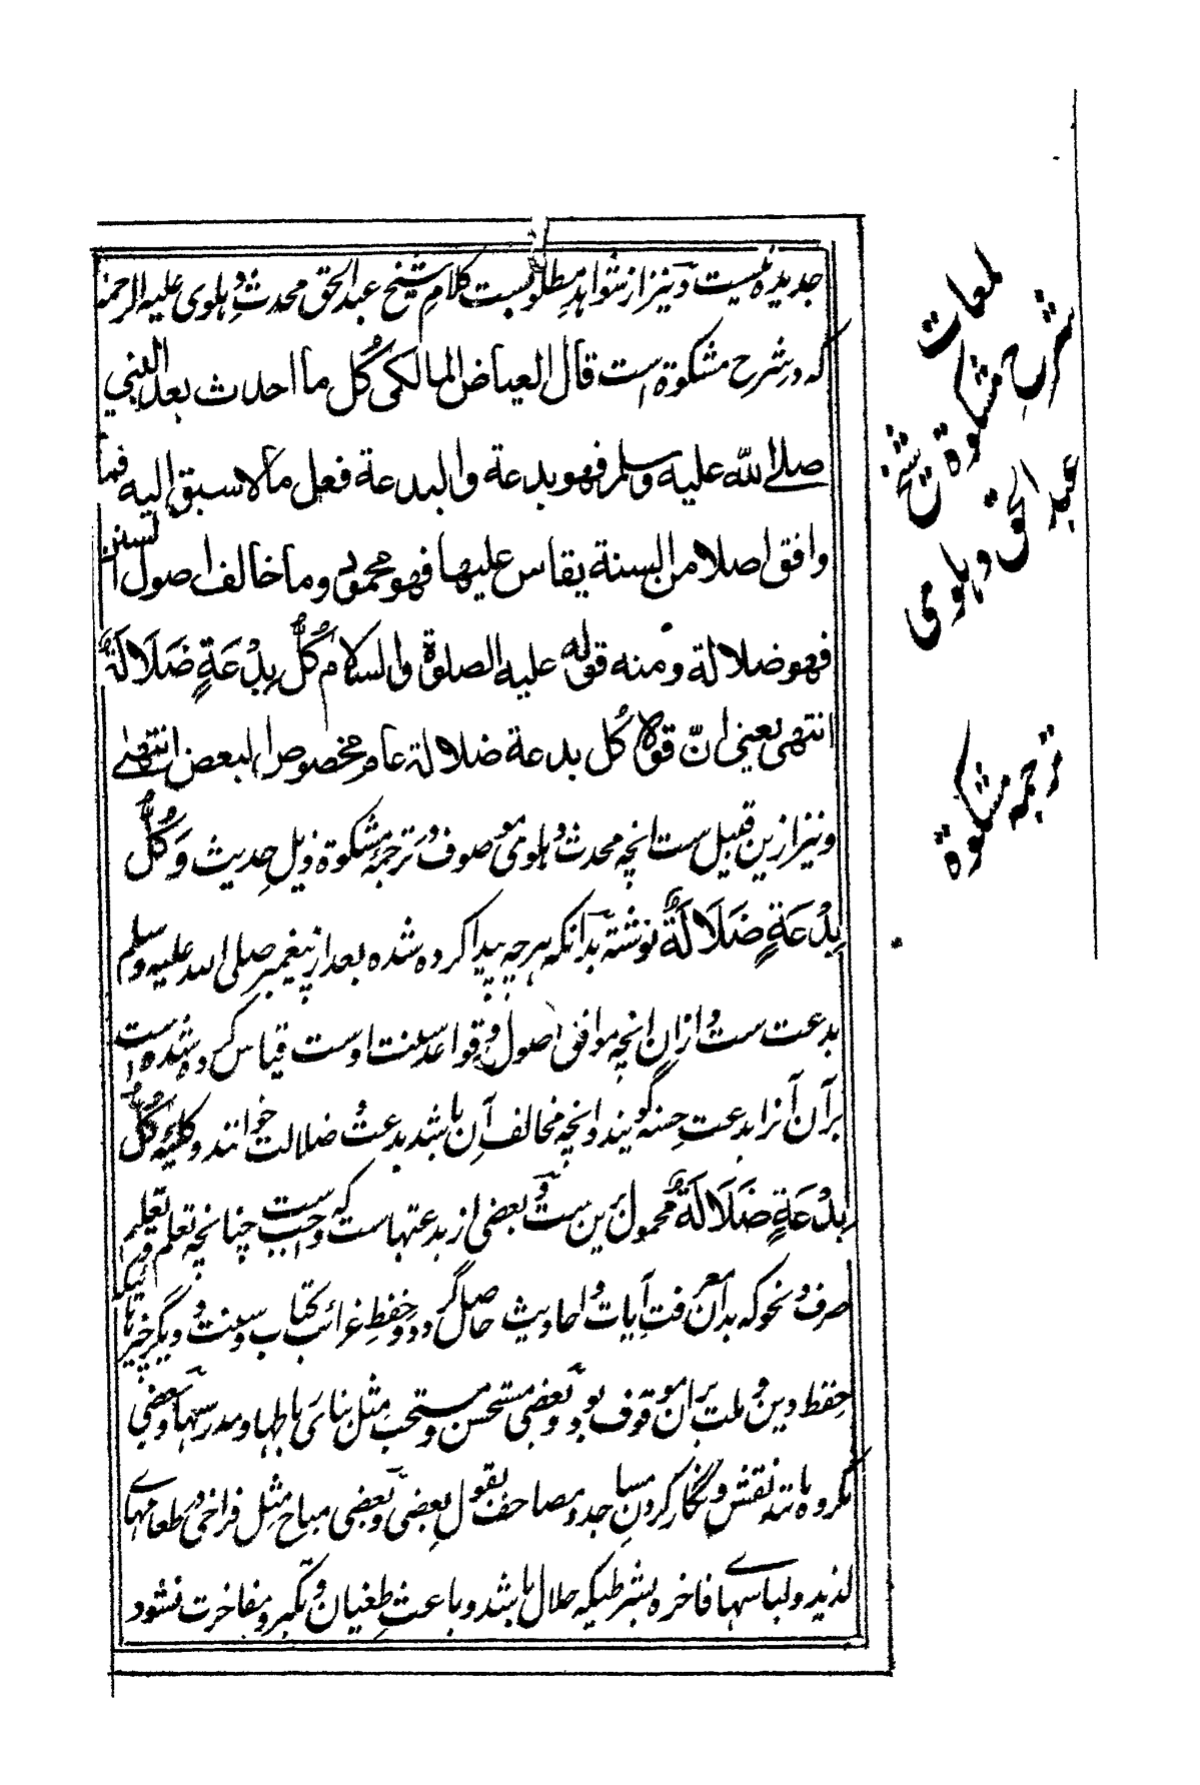 جدیده نیست و نیز از شواهد مطلوبست کلام شیخ عبدالحق محدث دہلوی علیه الرحمة
که در شرح مشکوة است قال العیاض المالکی كُل ما احدث بعد النبي
صلى الله عليه وسلم فهو بدعة والبدعة فعل ما لا سبق اليه فما
وافق اصلا من السنة يقاس عليها فهو محمود وما خالف اصول السنن
فهو ضلالة ومنه قوله عليه الصلوة والسلام كُلُّ بِدْعَةٍ ضَلَالَةٌ
انتهى يعني انّ قوله كُل بدعة ضلالة عام مخصوص البعض انتهى
و نیز ازین قبیل ست انچه محدث دہلوی موصوف در ترجمۂ مشکوة ذیل حدیث وَكُلُّ
بِدْعَةٍ ضَلَالَةٌ نوشته بدانکه هرچه پیدا کرده شده بعد از پیغمبر صلی الله علیه وسلم
بدعت ست و ازان انچه موافق اصول و قواعد سنت اوست و قیاس کرده شده است
بر آن آنرا بدعت حسنه گویند و انچه مخالف آن باشد بدعت ضلالت خوانند و کلیۂ كُلُّ
بِدْعَةٍ ضَلَالَةٌ محمول برین ست و بعضی از بدعتهاست که واجب ست چنانچه تعلم و تعلیم
صرف و نحو که بدان معرفت آیات و احادیث حاصل گردد و حفظ غرائب کتاب و سنت و دیگر چیزهائیکه
حفظ دین و ملت بران موقوف بود و بعضی مستحسن و مستحب مثل بنای رباطها و مدرسها و بعضی
مکروه مانند نقش و نگار کردن مساجد و مصاحف بقول بعضی و بعضی مباح مثل فراخی در طعامهای
لذیذ و لباسهای فاخره بشرطیکه حلال باشد و باعث طغیان و تکبر و مفاخرت نشود
لمعات
شرح مشکوة شیخ
عبد الحق دہلوی
ترجمه مشکوة